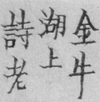 金牛
湖上
詩老